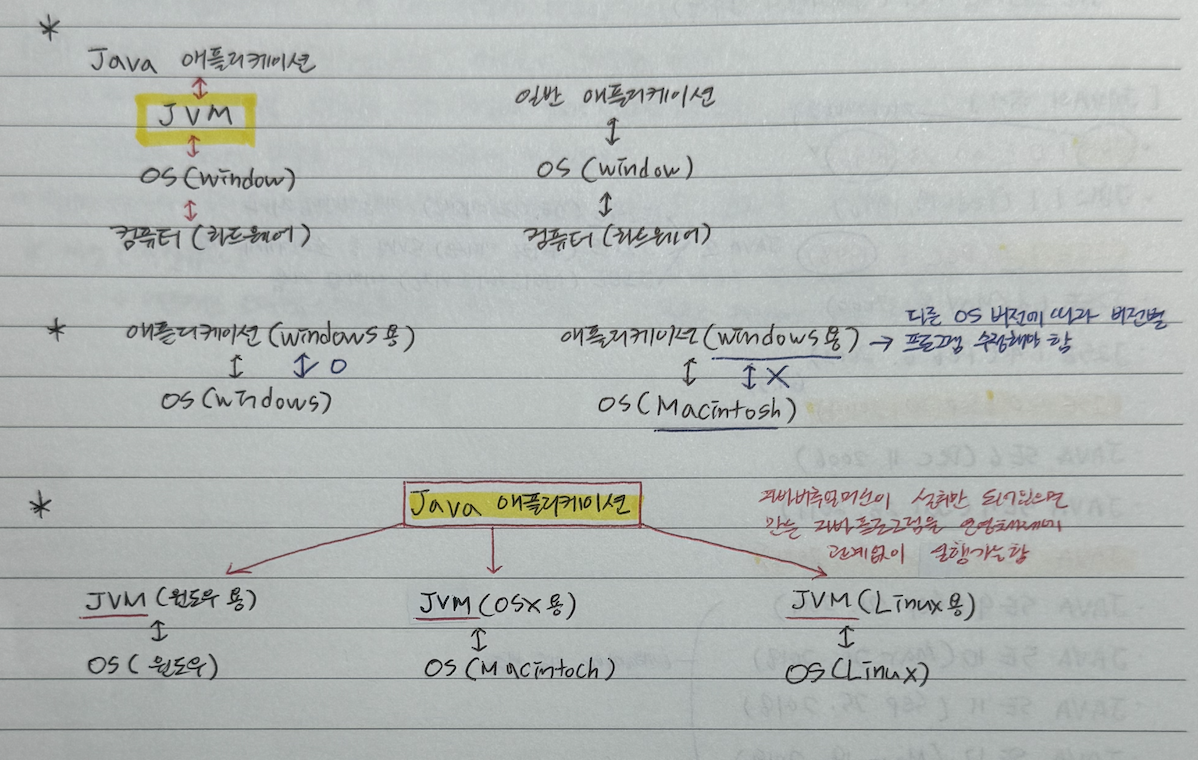 *
Java 애플리케이션
↕
JVM
↕
OS(window)
↕
컴퓨터(하드웨어)
일반 애플리케이션
↕
OS(window)
↕
컴퓨터(하드웨어)
*
애플리케이션(windows용)
↕ ↕ O
OS(windows)
애플리케이션(windows용) → 다른 OS 버전에 따라 버전별
프로그램 수정해야 함
↕ ↕ X
OS(Macintosh)
*
Java 애플리케이션
자바버추얼머신이 설치만 되어있으면
만든 자바프로그램을 운영체제에
관계없이 실행가능함
JVM(윈도우 용)
↕
OS(윈도우)
JVM(OSX용)
↕
OS(Macintoch)
JVM(Linux용)
↕
OS(Linux)
JAVA SE 6 (Dec 11 2006)
JAVA SE 9
JAVA SE 10 (Mar 2018)
JAVA SE 11 (SEP 25. 2018)